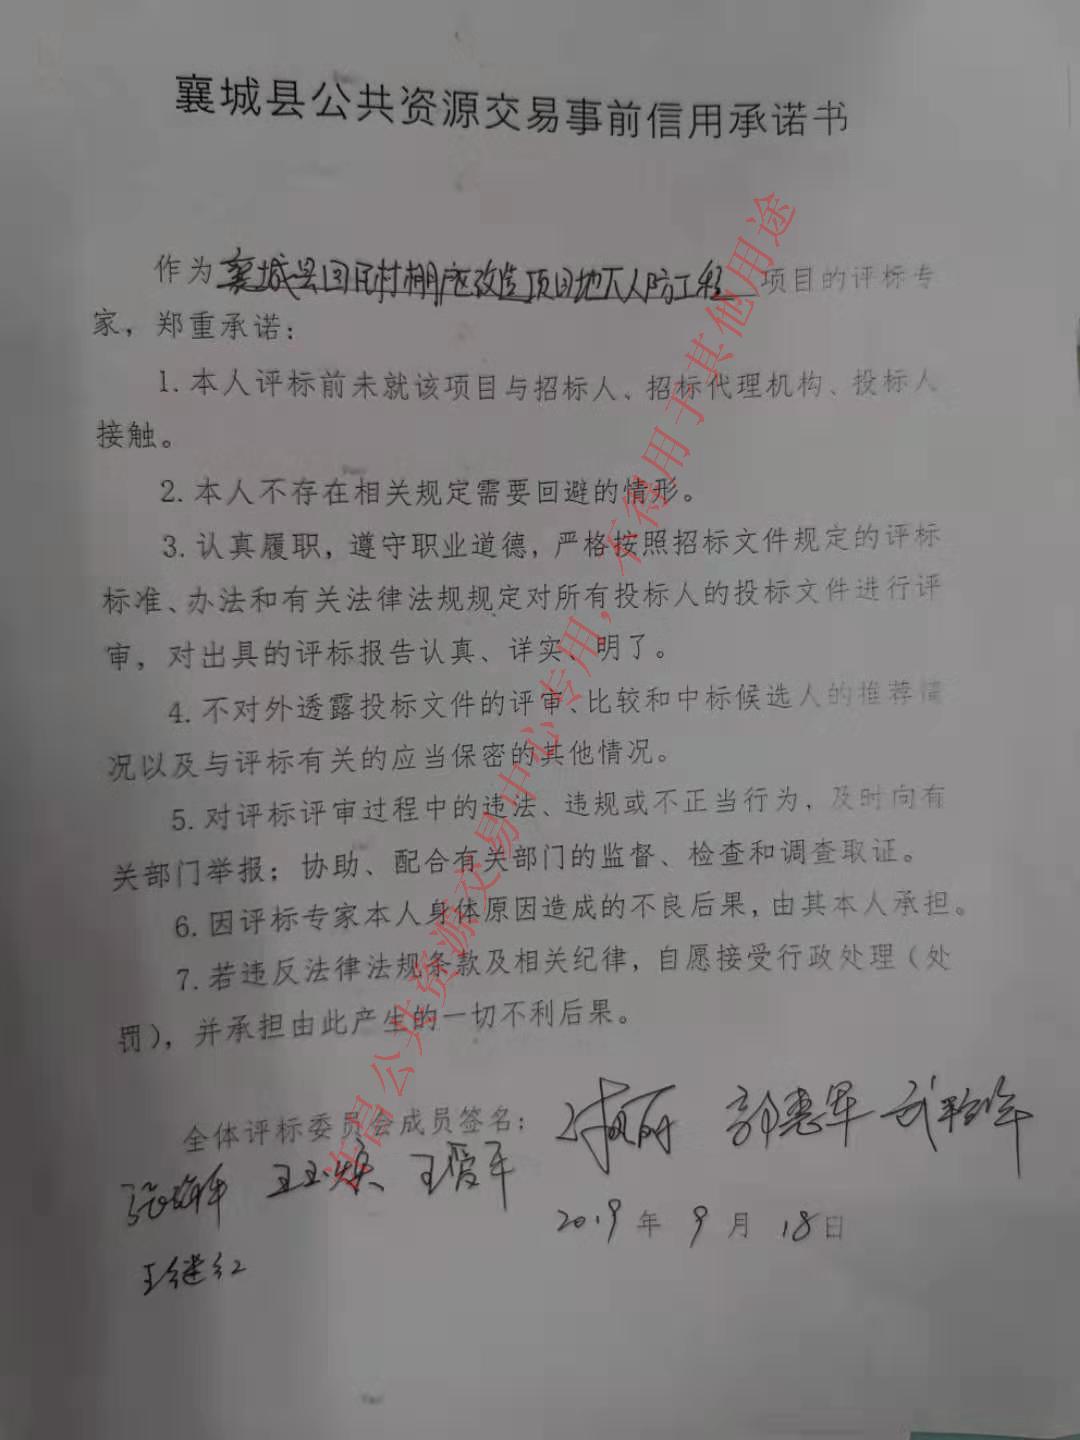 襄城县公共资源交易事前信用承诺书
作为襄城县闫寨村棚户区改造项目地下人防工程项目的评标专
家，郑重承诺：
1.本人评标前未就该项目与招标人、招标代理机构、投标人
接触。
2.本人不存在相关规定需要回避的情形。
3.认真履职，遵守职业道德，严格按照招标文件规定的评标
标准、办法和有关法律法规规定对所有投标人的投标文件进行评
审，对出具的评标报告认真、详实、明了。
4.不对外透露投标文件的评审、比较和中标候选人的推荐情
况以及与评标有关的应当保密的其他情况。
5.对评标评审过程中的违法、违规或不正当行为，及时向有
关部门举报；协助、配合有关部门的监督、检查和调查取证。
6.因评标专家本人身体原因造成的不良后果，由其本人承担。
7.若违反法律法规条款及相关纪律，自愿接受行政处理（处
罚），并承担由此产生的一切不利后果。
全体评标委员会成员签名： 郭惠军
王玉焕 王爱军
2019年9月18日
王继红
许昌公共资源交易中心专用，不得用于其他用途